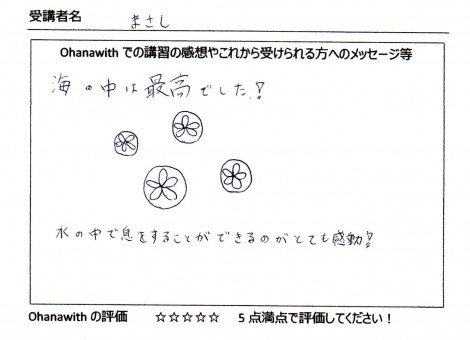 受講者名 まさし
Ohanawith での講習の感想やこれから受けられる方へのメッセージ等
海の中は最高でした!
水の中で息をすることができるのがとても感動!
Ohanawith の評価 ☆☆☆☆☆ 5 点満点で評価してください！